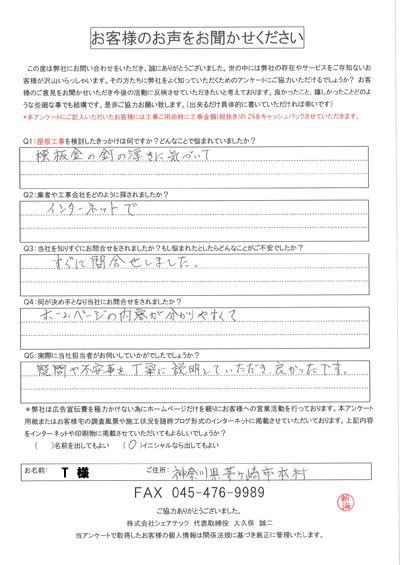 お客様のお声をお聞かせください
この度は弊社にお問い合わせをいただき、誠にありがとうございました。世の中には弊社の存在やサービスをご存知ないお
客様が沢山いらっしゃいます。その方たちに弊社をよく知っていただくためのアンケートにご協力いただけるでしょうか？ お客
様のご意見をお聞かせいただき今後の活動に反映させていただきたいと考えております。良かったこと、嬉しかったことどのよ
うな些細な事でも結構です。是非ご協力お願い致します。（出来るだけ具体的に書いていただければ幸いです）
*本アンケートにご記入いただいたお客様には工事ご用命時に工事金額(税抜き)の 2%をキャッシュバックさせていただきます。
Q1:屋根工事を検討したきっかけは何ですか？どんなことで悩まれていましたか？
棟板金の釘の浮きに気づいて
Q2:業者や工事会社をどのように探されましたか？
インターネットで
Q3:当社を知りすぐにお問合せをされましたか？もし悩まれたとしたらどんなことがご不安でしたか？
すぐに問合せしました。
Q4:何が決め手となり当社にお問合せをされましたか？
ホームページの内容が分かりやすくて
Q5:実際に当社担当者がお伺いしていかがでしたでしょうか？
疑問や不安事を丁寧に説明していただき、良かったです。
*弊社は広告宣伝費を極力かけない為にホームページだけを頼りにお客様への営業活動を行っております。本アンケート
用紙またはお客様宅の調査風景や施工状況を随時ブログ形式のインターネットに掲載させていただいております。上記内容
をインターネットや印刷物に掲載させていただいてもよろしいでしょうか？
（　）名前を出してもよい （ O ）イニシャルなら出してもよい
お名前: T 様 ご住所: 神奈川県茅ヶ崎市本村
FAX 045-476-9989
新海
ご協力ありがとうございました。
株式会社シェアテック 代表取締役 大久保 誠二
当アンケートで取得したお客様の個人情報は関係法規に基づき厳正に管理いたします。